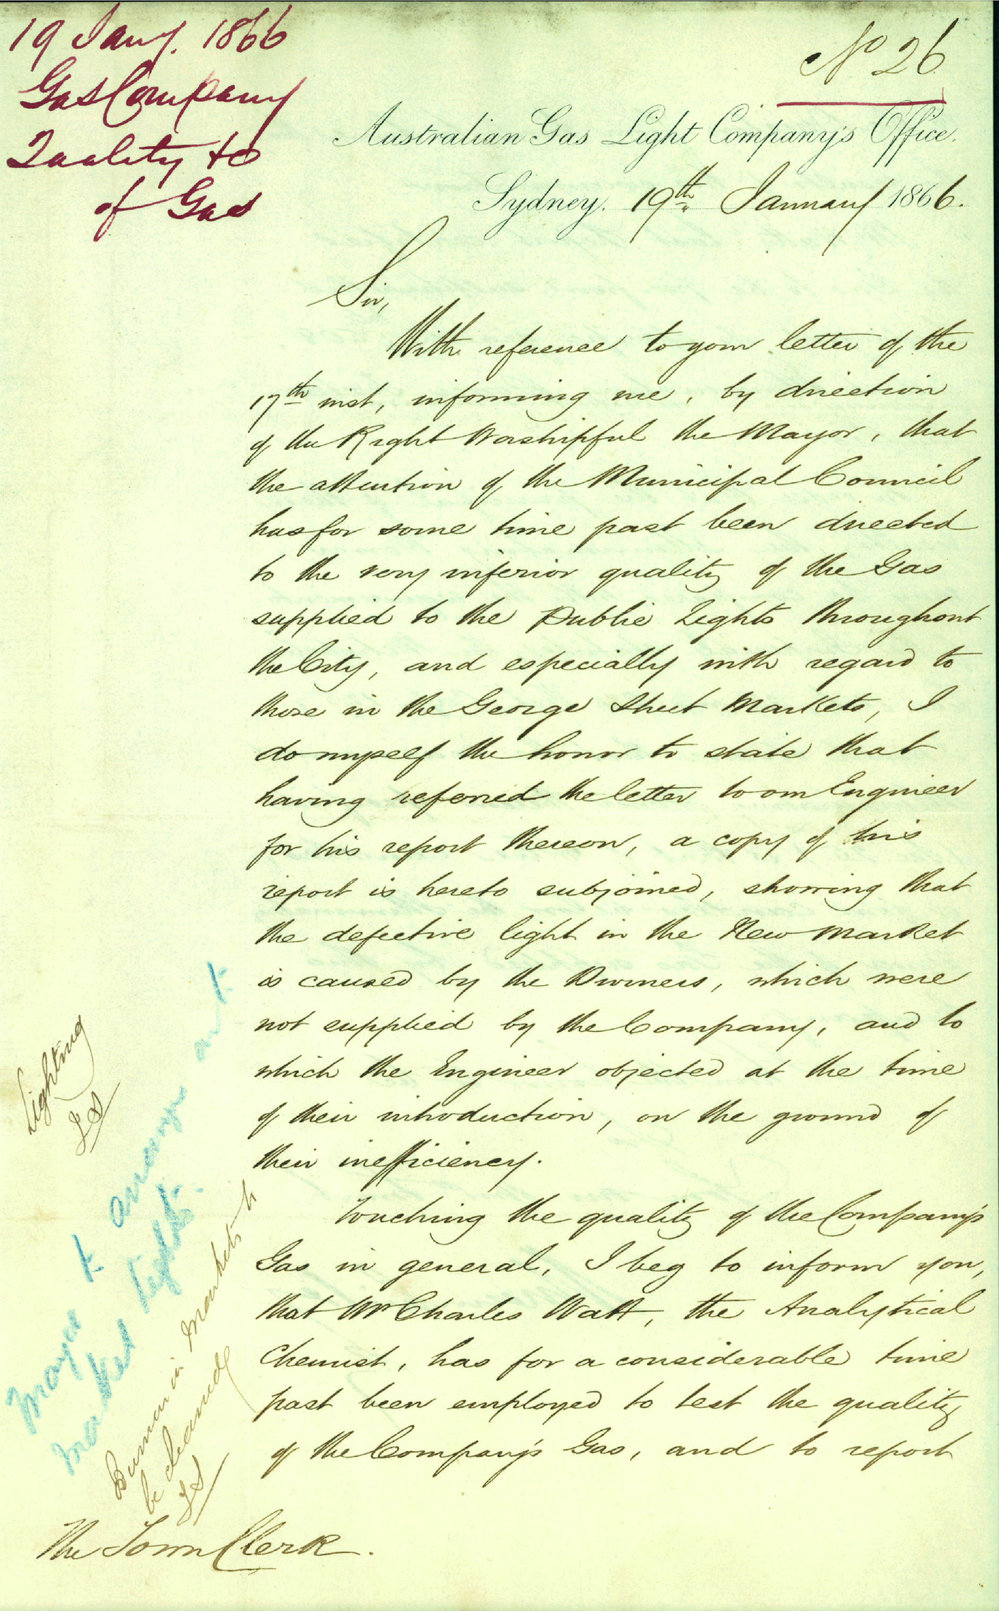 19 Jany. 1866
Gas Company
Quality to
of Gas
No 26
Australian Gas Light Company's Office.
Sydney. 19th January 1866.
Sir,
With reference to your letter of the
17th inst, informing me, by direction
of the Right Worshipful the Mayor, that
the attention of the Municipal Council
has for some time past been directed
to the very inferior quality of the Gas
supplied to the Public Lights throughout
the City, and especially with regard to
those in the George Street Markets, I
do myself the honor to state that
having referred the letter to our Engineer
for his report thereon, a copy of his
report is hereto subjoined, showing that
the defective light in the New Market
is caused by the Burners, which were
not supplied by the Company, and to
which the Engineer objected at the time
of their introduction, on the ground of
their inefficiency.
Touching the quality of the Company's
Gas in general, I beg to inform you,
that Mr Charles Watt, the Analytical
Chemist, has for a considerable time
past been employed to test the quality
of the Company's Gas, and to report
The Town Clerk.
Lighting
Mayor to arrange
Market lights.
Burners in Markets to
be cleaned